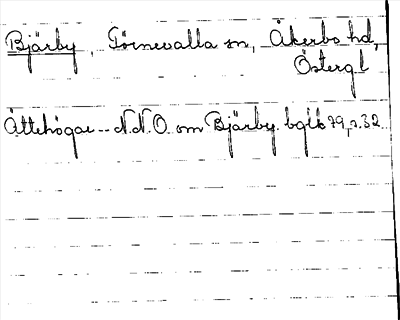 Bjärby, Törnevalla sn, Åkerbo hd,
Östergl
Ättehögar -- N.N.O. om Bjärby. bglk 79, s. 32.